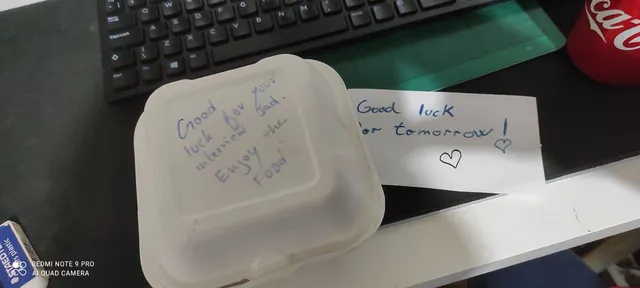 Good
luck for your
interview Jad.
Enjoy the
Food
Good luck
for tomorrow!
REDMI NOTE 9 PRO
AI QUAD CAMERA